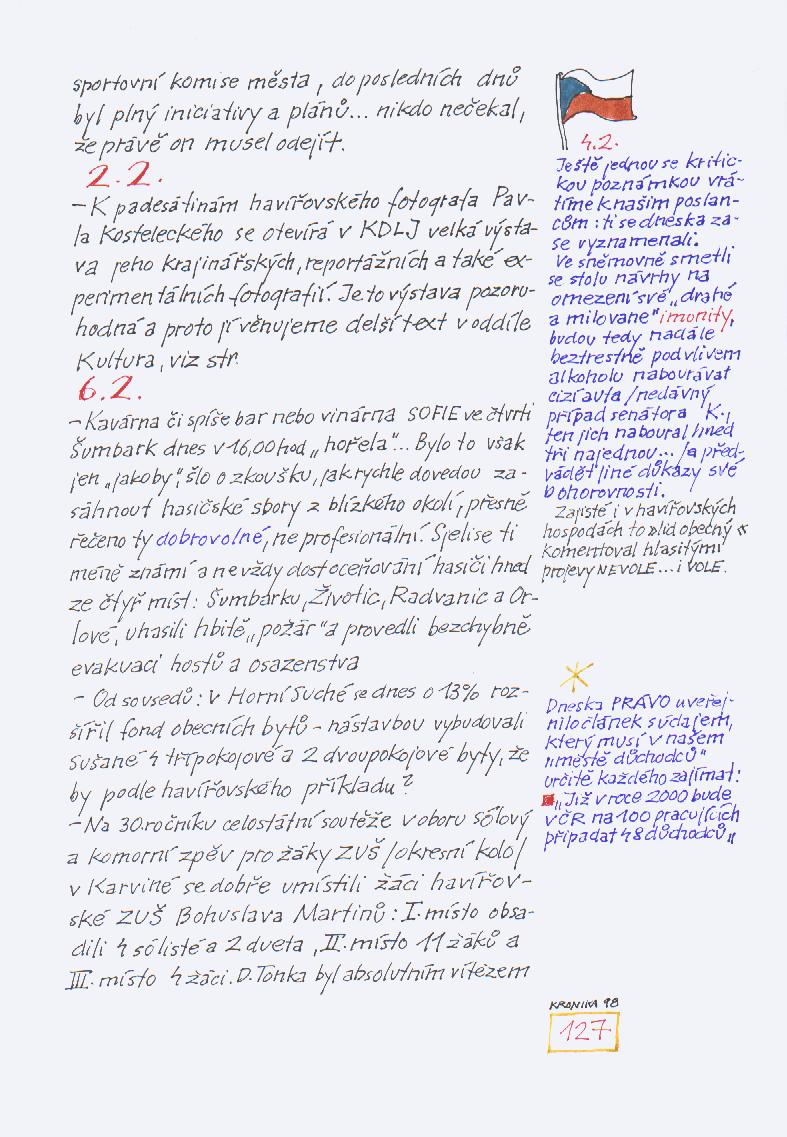 sportovní komise města, do posledních dnů
byl plný iniciativy a plánů... nikdo nečekal,
že právě on musel odejít.
2.2.
– K padesátinám havířovského fotografa Pav-
la Kosteleckého se otevírá v KDLJ velká výsta-
va jeho krajinářských, reportážních a také ex-
perimentálních fotografií. Je to výstava pozoru-
hodná a proto jí věnujeme delší text v oddíle
Kultura, viz str.
6.2.
– Kavárna či spíše bar nebo vinárna SOFIE ve čtvrti
Šumbark dnes v 16,00 hod „hořela"... Bylo to však
jen „jakoby", šlo o zkoušku, jak rychle dovedou za-
sáhnout hasičské sbory z blízkého okolí, přesně
řečeno ty dobrovolné, ne profesionální. Sjeli se ti
méně známí a ne vždy dost oceňování hasiči hned
ze čtyř míst: Šumbarku, Životic, Radvanic a Or-
lové, uhasili hbitě „požár" a provedli bezchybně
evakuaci hostů a osazenstva
– Od sousedů: v Horní Suché se dnes o 13% roz-
šířil fond obecních bytů – nástavbou vybudovali
Sušané 4 třípokojové a 2 dvoupokojové byty, že
by podle havířovského příkladu?
– Na 30. ročníku celostátní soutěže v oboru sólový
a komorní zpěv pro žáky ZUŠ /okresní kolo/
v Karviné se dobře umístili žáci havířov-
ské ZUŠ Bohuslava Martinů: I. místo obsa-
dili 4 sólisté a 2 dueta, II. místo 11 žáků a
III. místo 4 žáci. D. Tonka byl absolutním vítězem
4.2.
Ještě jednou se kritic-
kou poznámkou vrá-
tíme k našim poslan-
cům: ti se dneska za-
se vyznamenali.
Ve sněmovně smetli
se stolu návrhy na
omezení své „drahé
a milované" imunity,
budou tedy nadále
beztrestně pod vlivem
alkoholu nabourávat
cizí auta /nedávný
případ senátora K.,
ten jich naboural hned
tři najednou.../ a před-
vádět jiné důkazy své
bohorovnosti.
Zajisté i v havířovských
hospodách to »lid obecný«
komentoval hlasitými
projevy NEVOLE... i VOLE.
Dneska PRÁVO uveřej-
nilo článek s údajem,
který musí v našem
„městě důchodců"
určitě každého zajímat:
„Již v roce 2000 bude
v ČR na 100 pracujících
připadat 48 důchodců„
KRONIKA 98
127